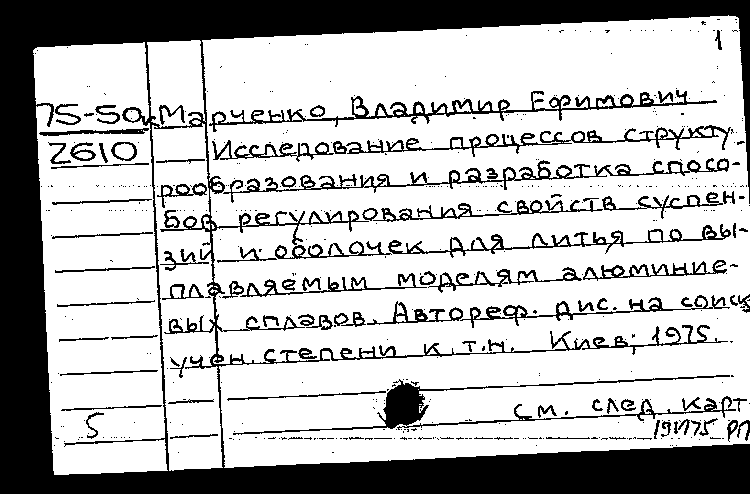 1
75-50к Марченко, Владимир Ефимович
2610 Исследование процессов структу-
рообразования и разработка спосо-
бов регулирования свойств суспен-
зий и оболочек для литья по вы-
плавляемым моделям алюминие-
вых сплавов. Автореф. дис. на соиск
учен. степени к.т.н. Киев, 1975.
см. след. карт
5
РП